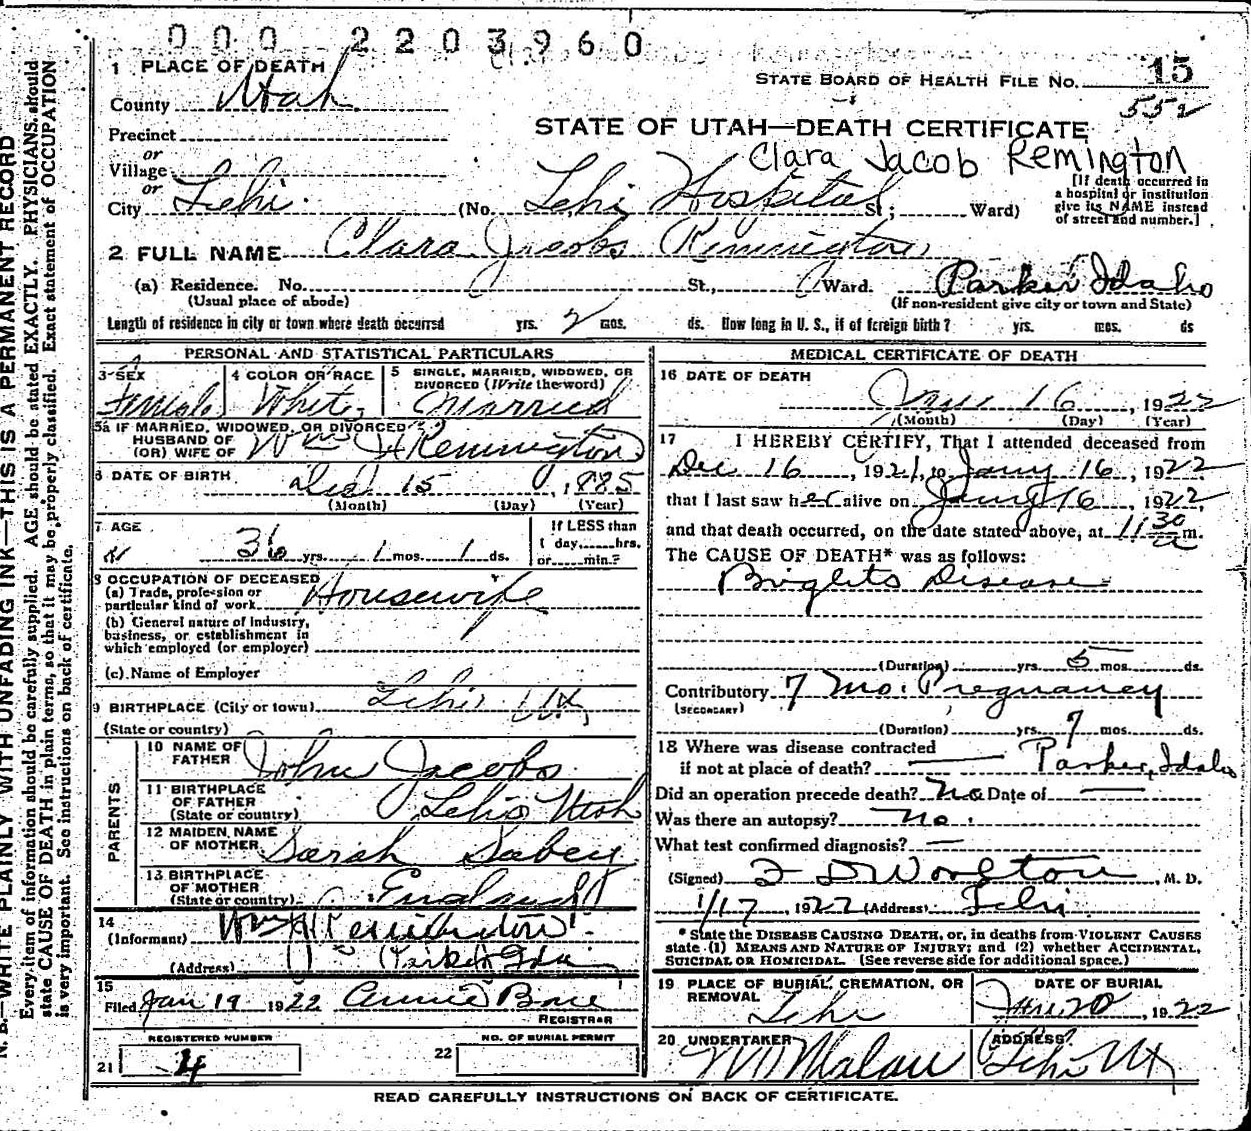 0 0 0 2 2 0 3 9 6 0
1 PLACE OF DEATH
STATE BOARD OF HEALTH FILE NO. 15
County Utah
552
Precinct
STATE OF UTAH—DEATH CERTIFICATE
or
Clara Jacob Remington
Village
or
City Lehi. (No. Lehi Hospital St; Ward)
[If death occurred in
a hospital or institution
give its NAME instead
of street and number.]
2 FULL NAME Clara Jacobs Remington
(a) Residence. No. St., Ward. Parker Idaho
(Usual place of abode) (If non-resident give city or town and State)
Length of residence in city or town where death occurred yrs. 2 mos. ds. How long in U. S., if of foreign birth? yrs. mos. ds
PERSONAL AND STATISTICAL PARTICULARS
3 SEX Female
4 COLOR OR RACE White
5 SINGLE, MARRIED, WIDOWED, OR
DIVORCED (Write the word)
Married
5a IF MARRIED, WIDOWED, OR DIVORCED
HUSBAND OF
(OR) WIFE OF Wm H Remington
6 DATE OF BIRTH Dec 15, 1885
(Month) (Day) (Year)
7 AGE
36 yrs. 1 mos. 1 ds.
If LESS than
1 day, hrs.
or min.?
8 OCCUPATION OF DECEASED
(a) Trade, profession or
particular kind of work Housewife
(b) General nature of Industry,
business, or establishment in
which employed (or employer)
(c) Name of Employer
9 BIRTHPLACE (City or town) Lehi Ut,
(State or country)
PARENTS
10 NAME OF
FATHER John Jacobs
11 BIRTHPLACE
OF FATHER
(State or country) Lehi Utah
12 MAIDEN NAME
OF MOTHER Sarah Sabey
13 BIRTHPLACE
OF MOTHER
(State or country) England
14
(Informant) Wm H Remington
(Address) Parker Ida
15
Filed Jan 19 1922 Annie
REGISTRAR
REGISTERED NUMBER
21 4
NO. OF BURIAL PERMIT
22
MEDICAL CERTIFICATE OF DEATH
16 DATE OF DEATH
Jan 16, 1922
(Month) (Day) (Year)
17 I HEREBY CERTIFY, That I attended deceased from
Dec 16, 1921, to Jany 16, 1922
that I last saw her alive on Jany 16, 1922,
and that death occurred, on the date stated above, at 11 30 a m.
The CAUSE OF DEATH* was as follows:
Brights Disease
(Duration) yrs. 5 mos. ds.
Contributory 7 mo. Pregnancy
(SECONDARY)
(Duration) yrs. 7 mos. ds.
18 Where was disease contracted
if not at place of death? Parker, Idaho
Did an operation precede death? No Date of —
Was there an autopsy? No.
What test confirmed diagnosis? —
(Signed) , M. D.
1/17, 1922 (Address) Lehi
* State the DISEASE CAUSING DEATH, or, in deaths from VIOLENT CAUSES
state (1) MEANS AND NATURE OF INJURY; and (2) whether ACCIDENTAL,
SUICIDAL OR HOMICIDAL. (See reverse side for additional space.)
19 PLACE OF BURIAL, CREMATION, OR
REMOVAL Lehi
DATE OF BURIAL
Jan 20, 1922
20 UNDERTAKER
ADDRESS
Lehi Ut
READ CAREFULLY INSTRUCTIONS ON BACK OF CERTIFICATE.
N. B.—WRITE PLAINLY WITH UNFADING INK—THIS IS A PERMANENT RECORD
Every item of information should be carefully supplied. AGE should be stated EXACTLY. PHYSICIANS should
state CAUSE OF DEATH in plain terms, so that it may be properly classified. Exact statement of OCCUPATION
is very important. See instructions on back of certificate.